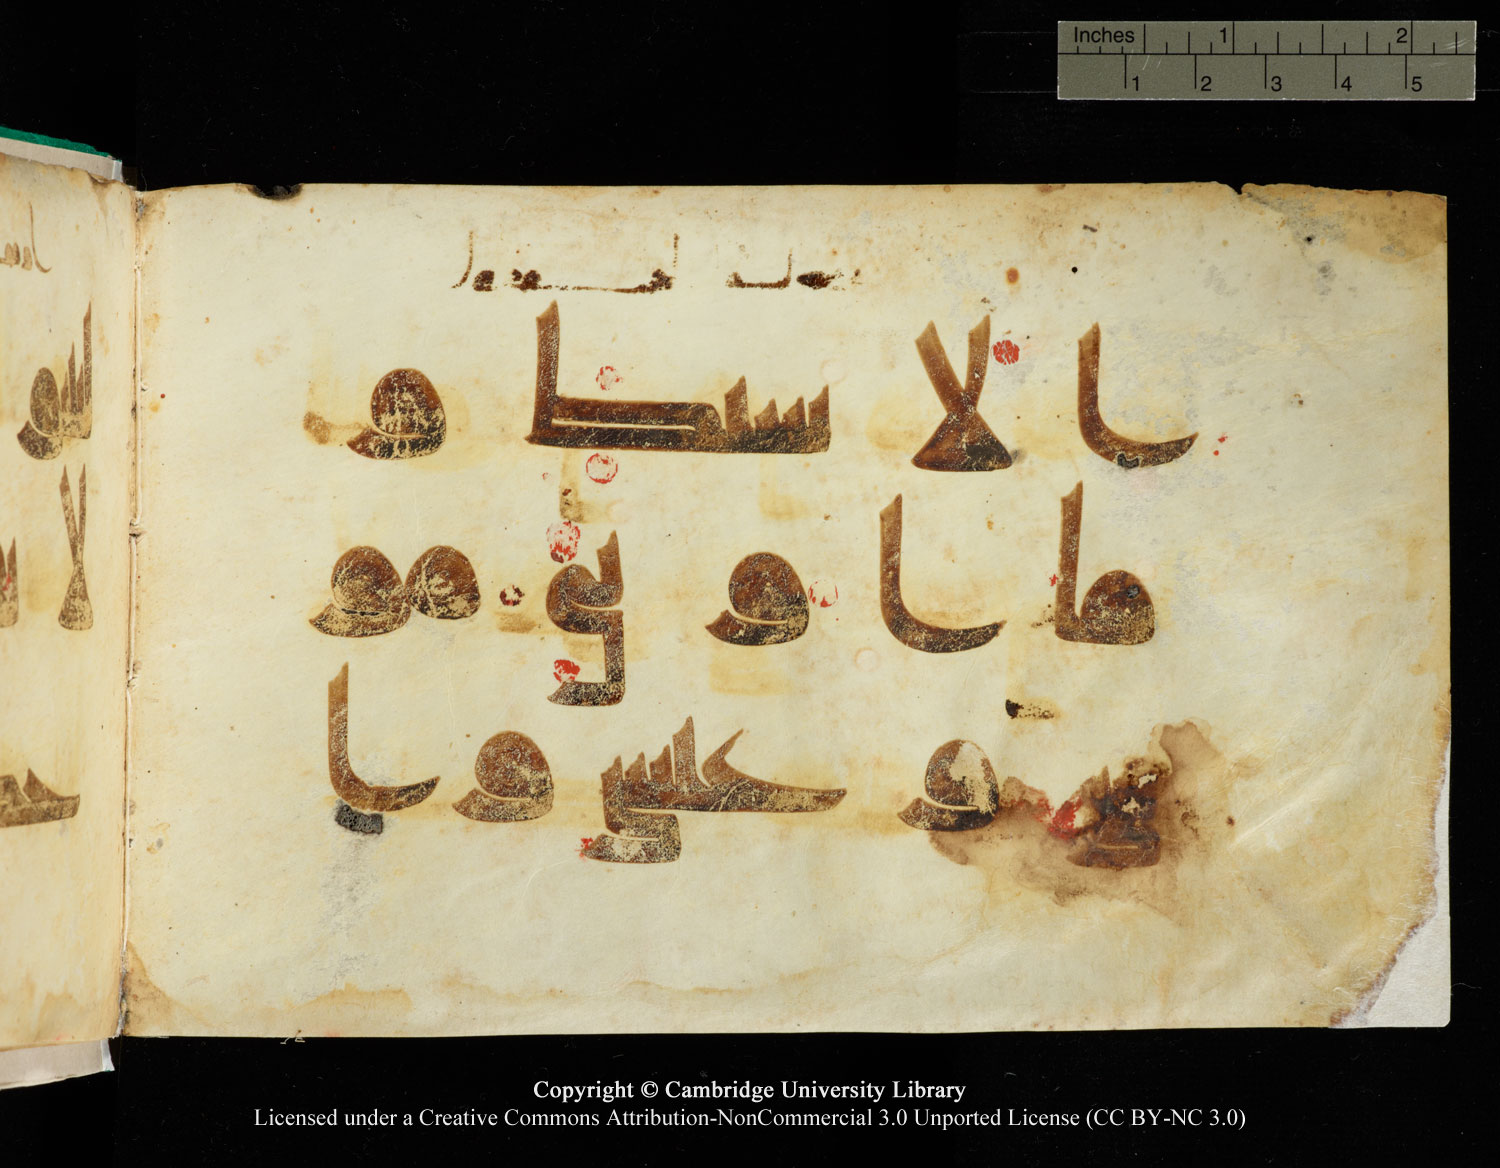 Inches 1 2
1 2 3 4 5
ا لا سبط و
ما ا و تى مو
سى و عيسى و ا
Copyright © Cambridge University Library
Licensed under a Creative Commons Attribution-NonCommercial 3.0 Unported License (CC BY-NC 3.0)